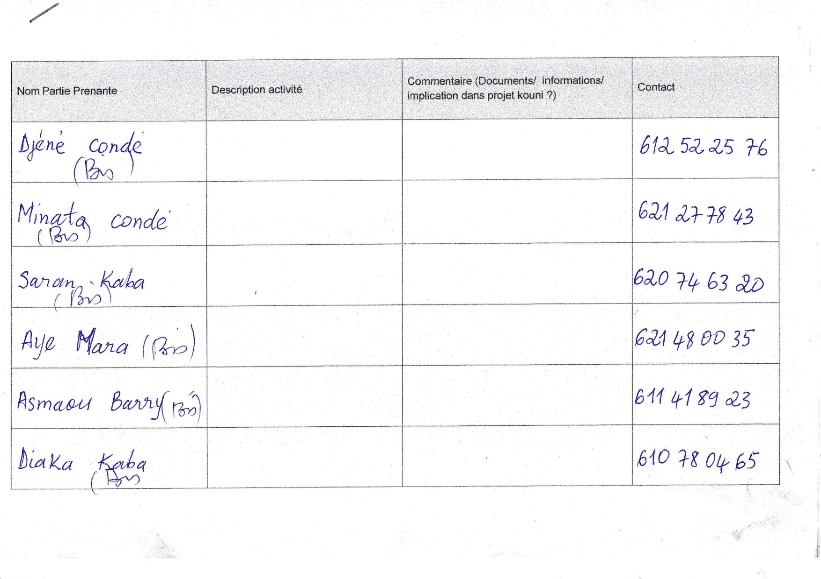 Nom Partie Prenante
Description activité
Commentaire (Documents/ informations/
implication dans projet kouni ?)
Contact
Djéné condé
(Bis)
612 52 25 76
Minata condé
(Bis)
621 27 78 43
Saran Kaba
(Bis)
620 74 63 20
Aye Mara (Bis)
621 48 00 35
Asmaou Barry (Bis)
611 41 89 23
Diaka Kaba
(Bis)
610 78 04 65